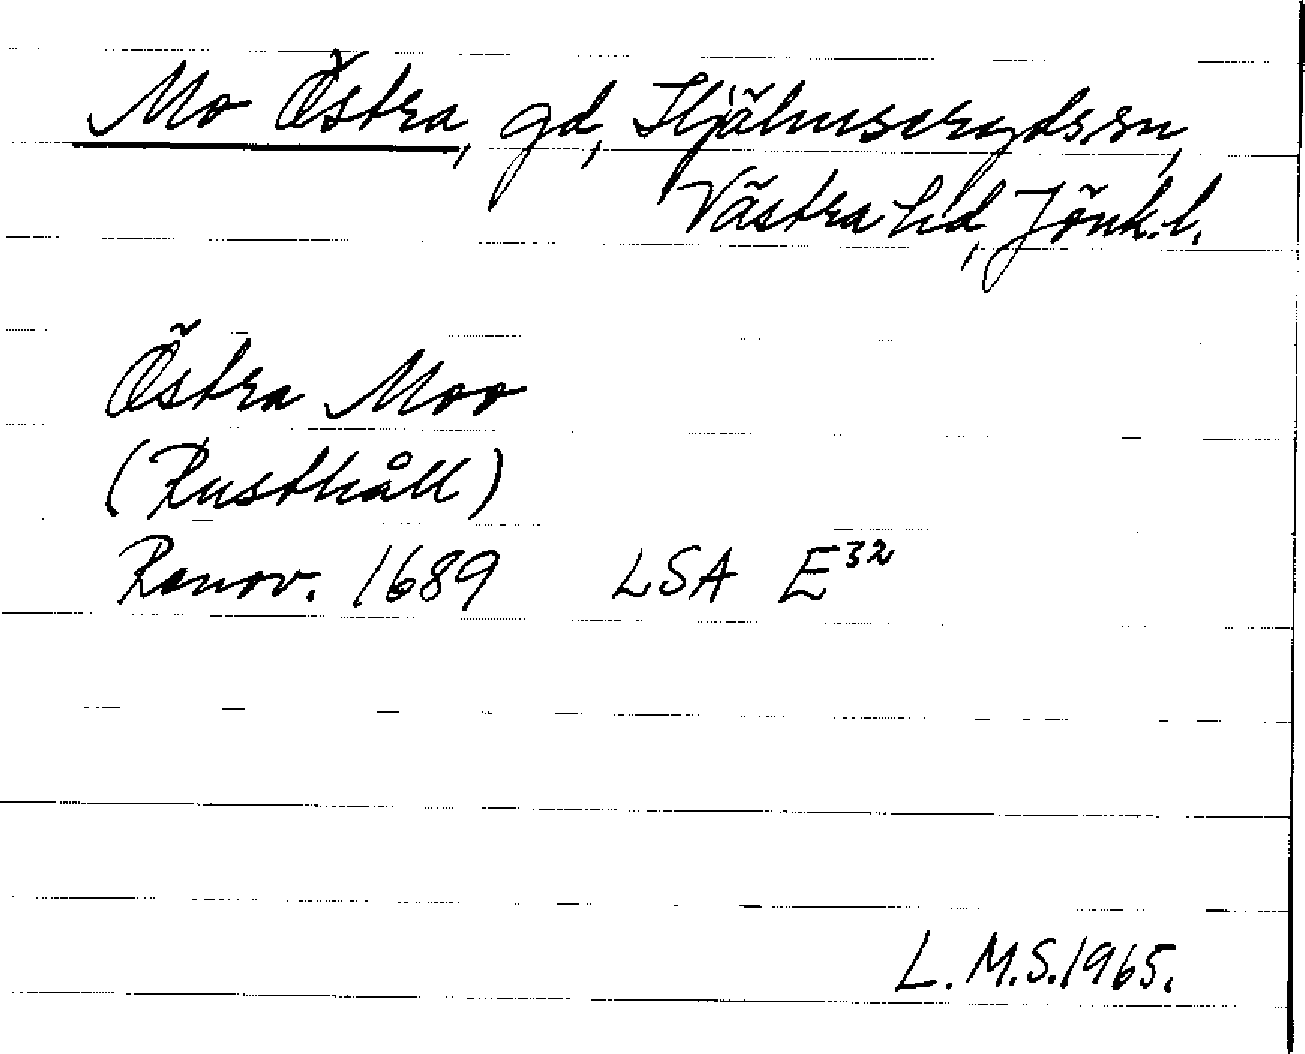 Mo Östra, gd, Hjälmserydssn,
Västra hd, Jönk.l.
Östra Moo
(Rusthåll)
Renov. 1689 LSA E³²
L.M.S.1965.